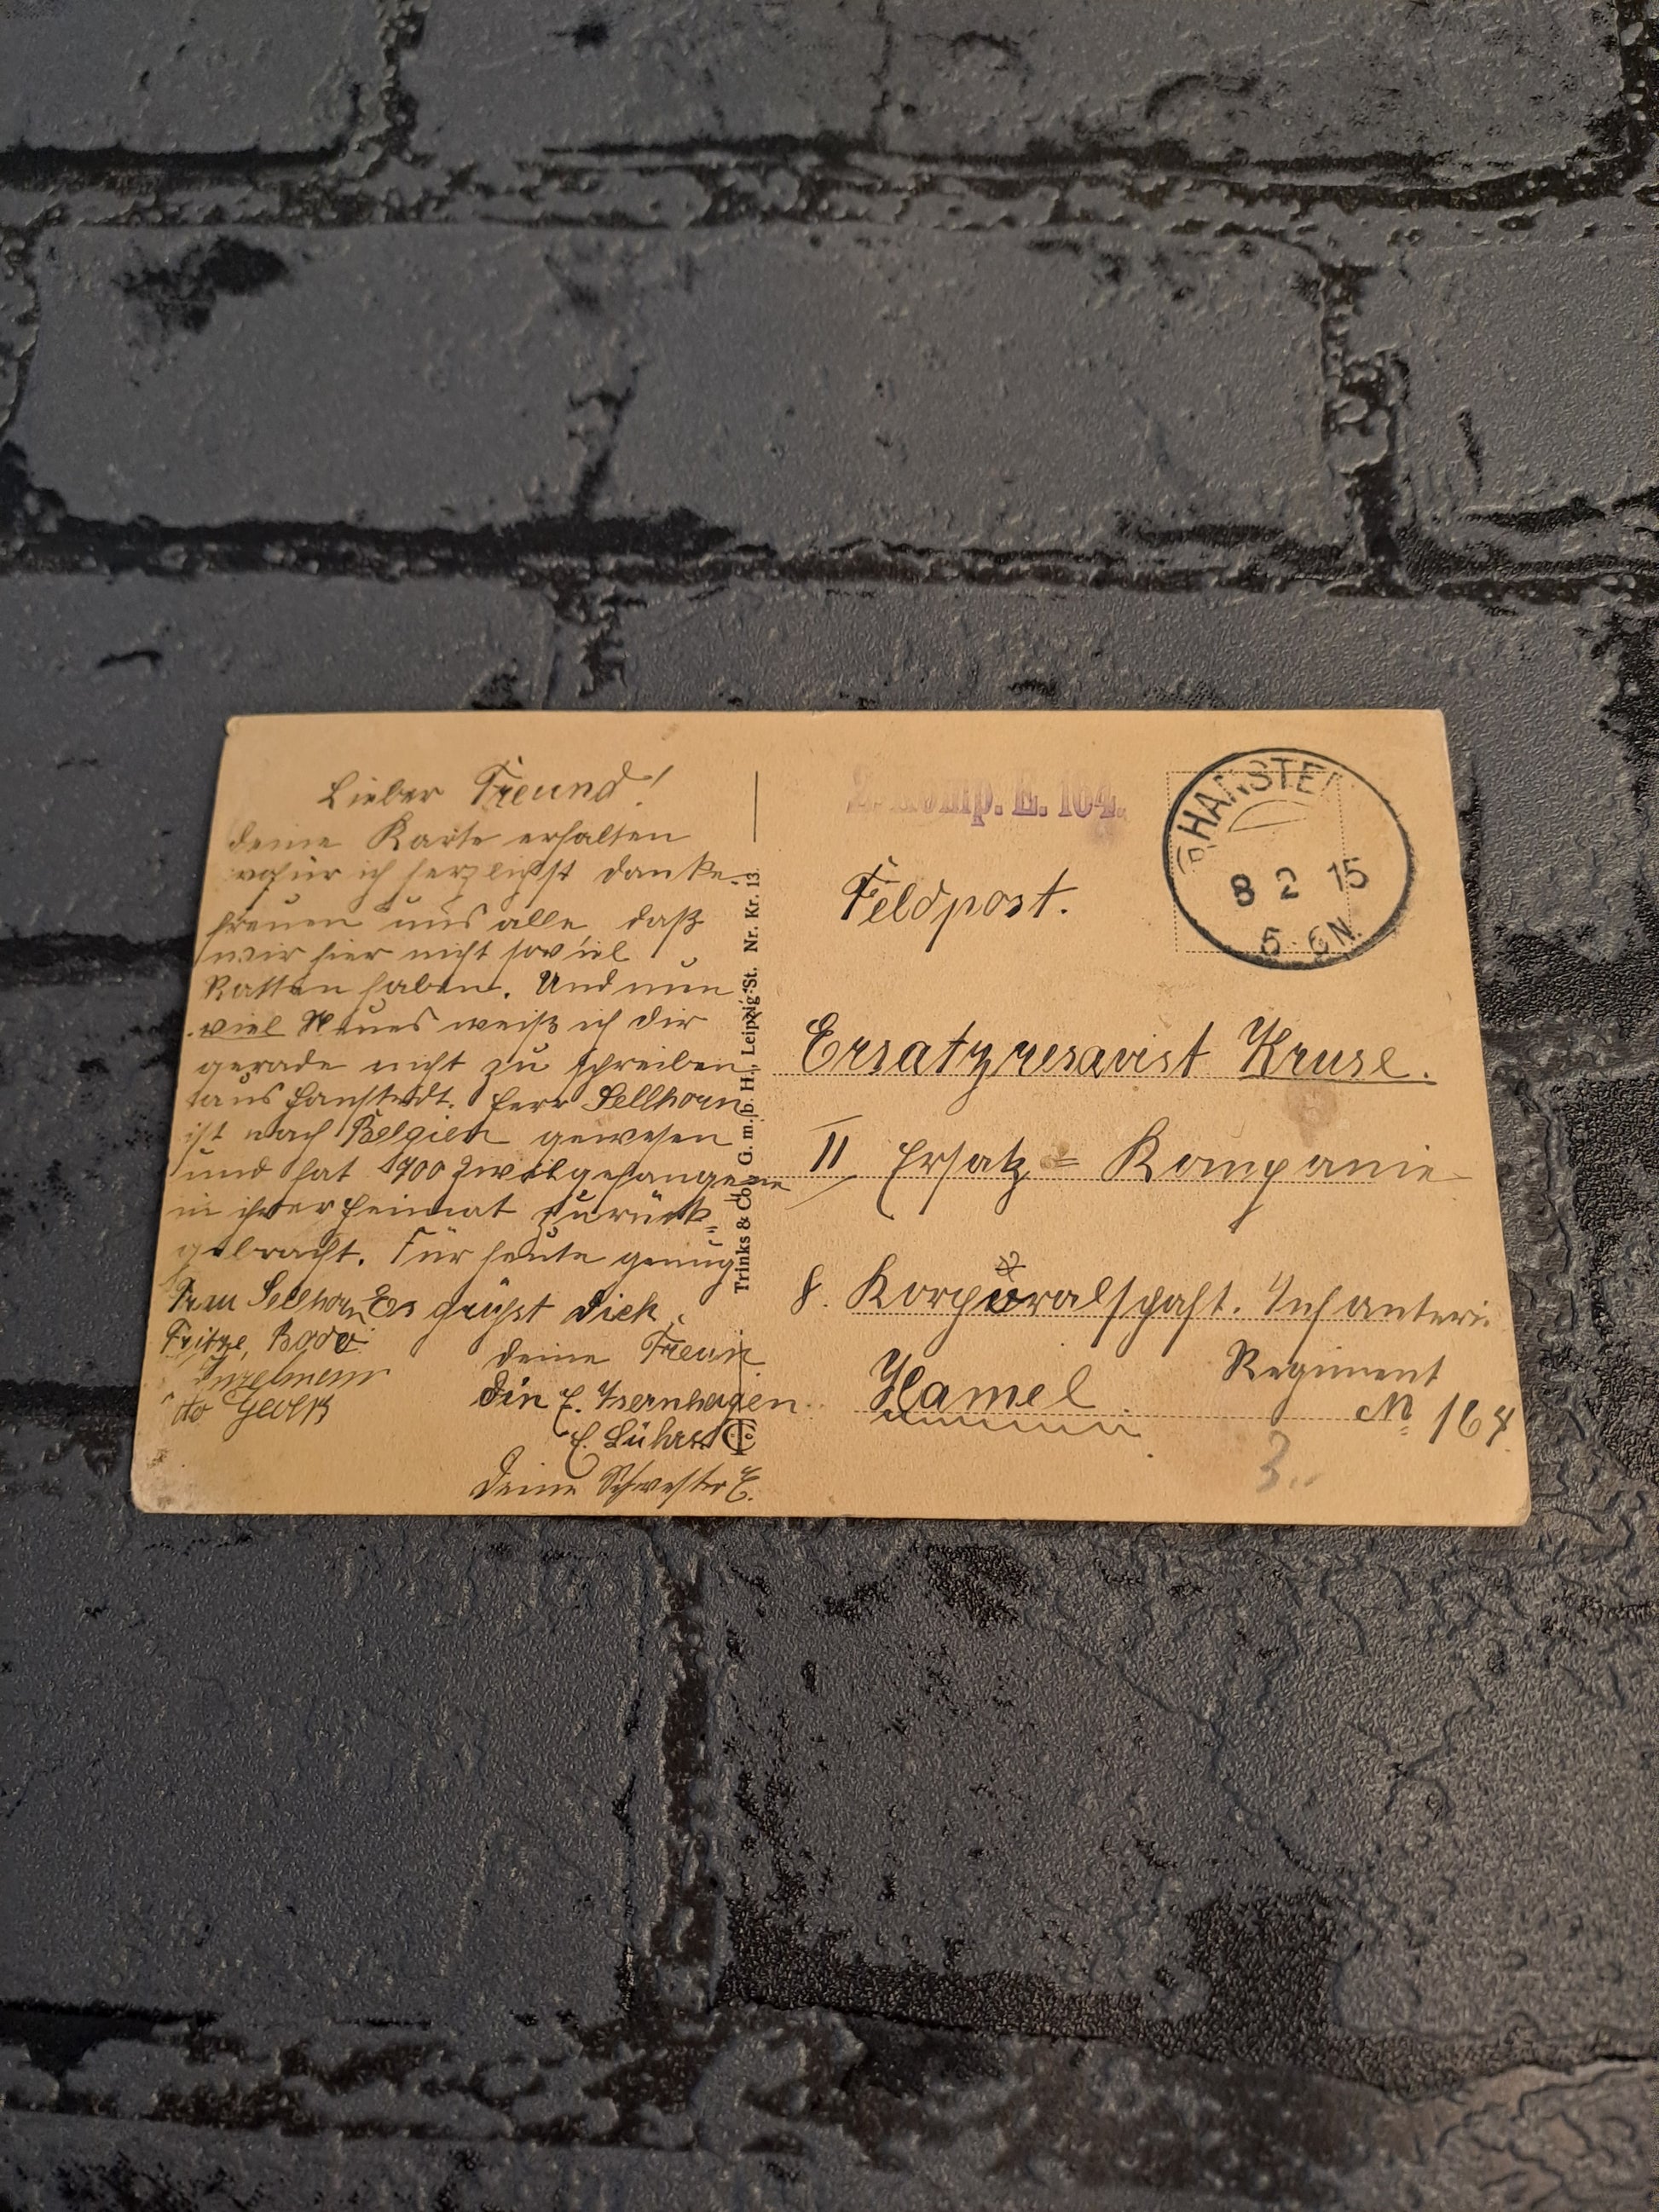 Lieber Freund!
Deine Karte erhalten
wofür ich herzlichst danke.
freuen uns alle, daß
wir hier nicht soviel
Ratten haben. Und nun
viel Neues weiß ich dir
gerade nicht zu schreiben
aus Hanstedt. Herr Sellhorn
ist nach Belgien gewesen
und hat 1900 Zwilgefangene
in ihrer Heimat zurück=
gebracht. Für heute genug
Frau Sellhorn Es grüßt Dich
Fritze, Bode
deine Freun
din E. Isernhagen
E. Lührs
Deine Schwester E.
Trinks & Co. G. m. b. H., Leipzig-St. Nr. Kr. 13.
Komp. E. 164.
HANSTE
8 2 15
5-6N.
Feldpost.
Ersatzresavist Kruse.
II Ersatz = Kompanie
8. Korporalschaft. Infanteri
Regiment
Hamel
No 164
3.